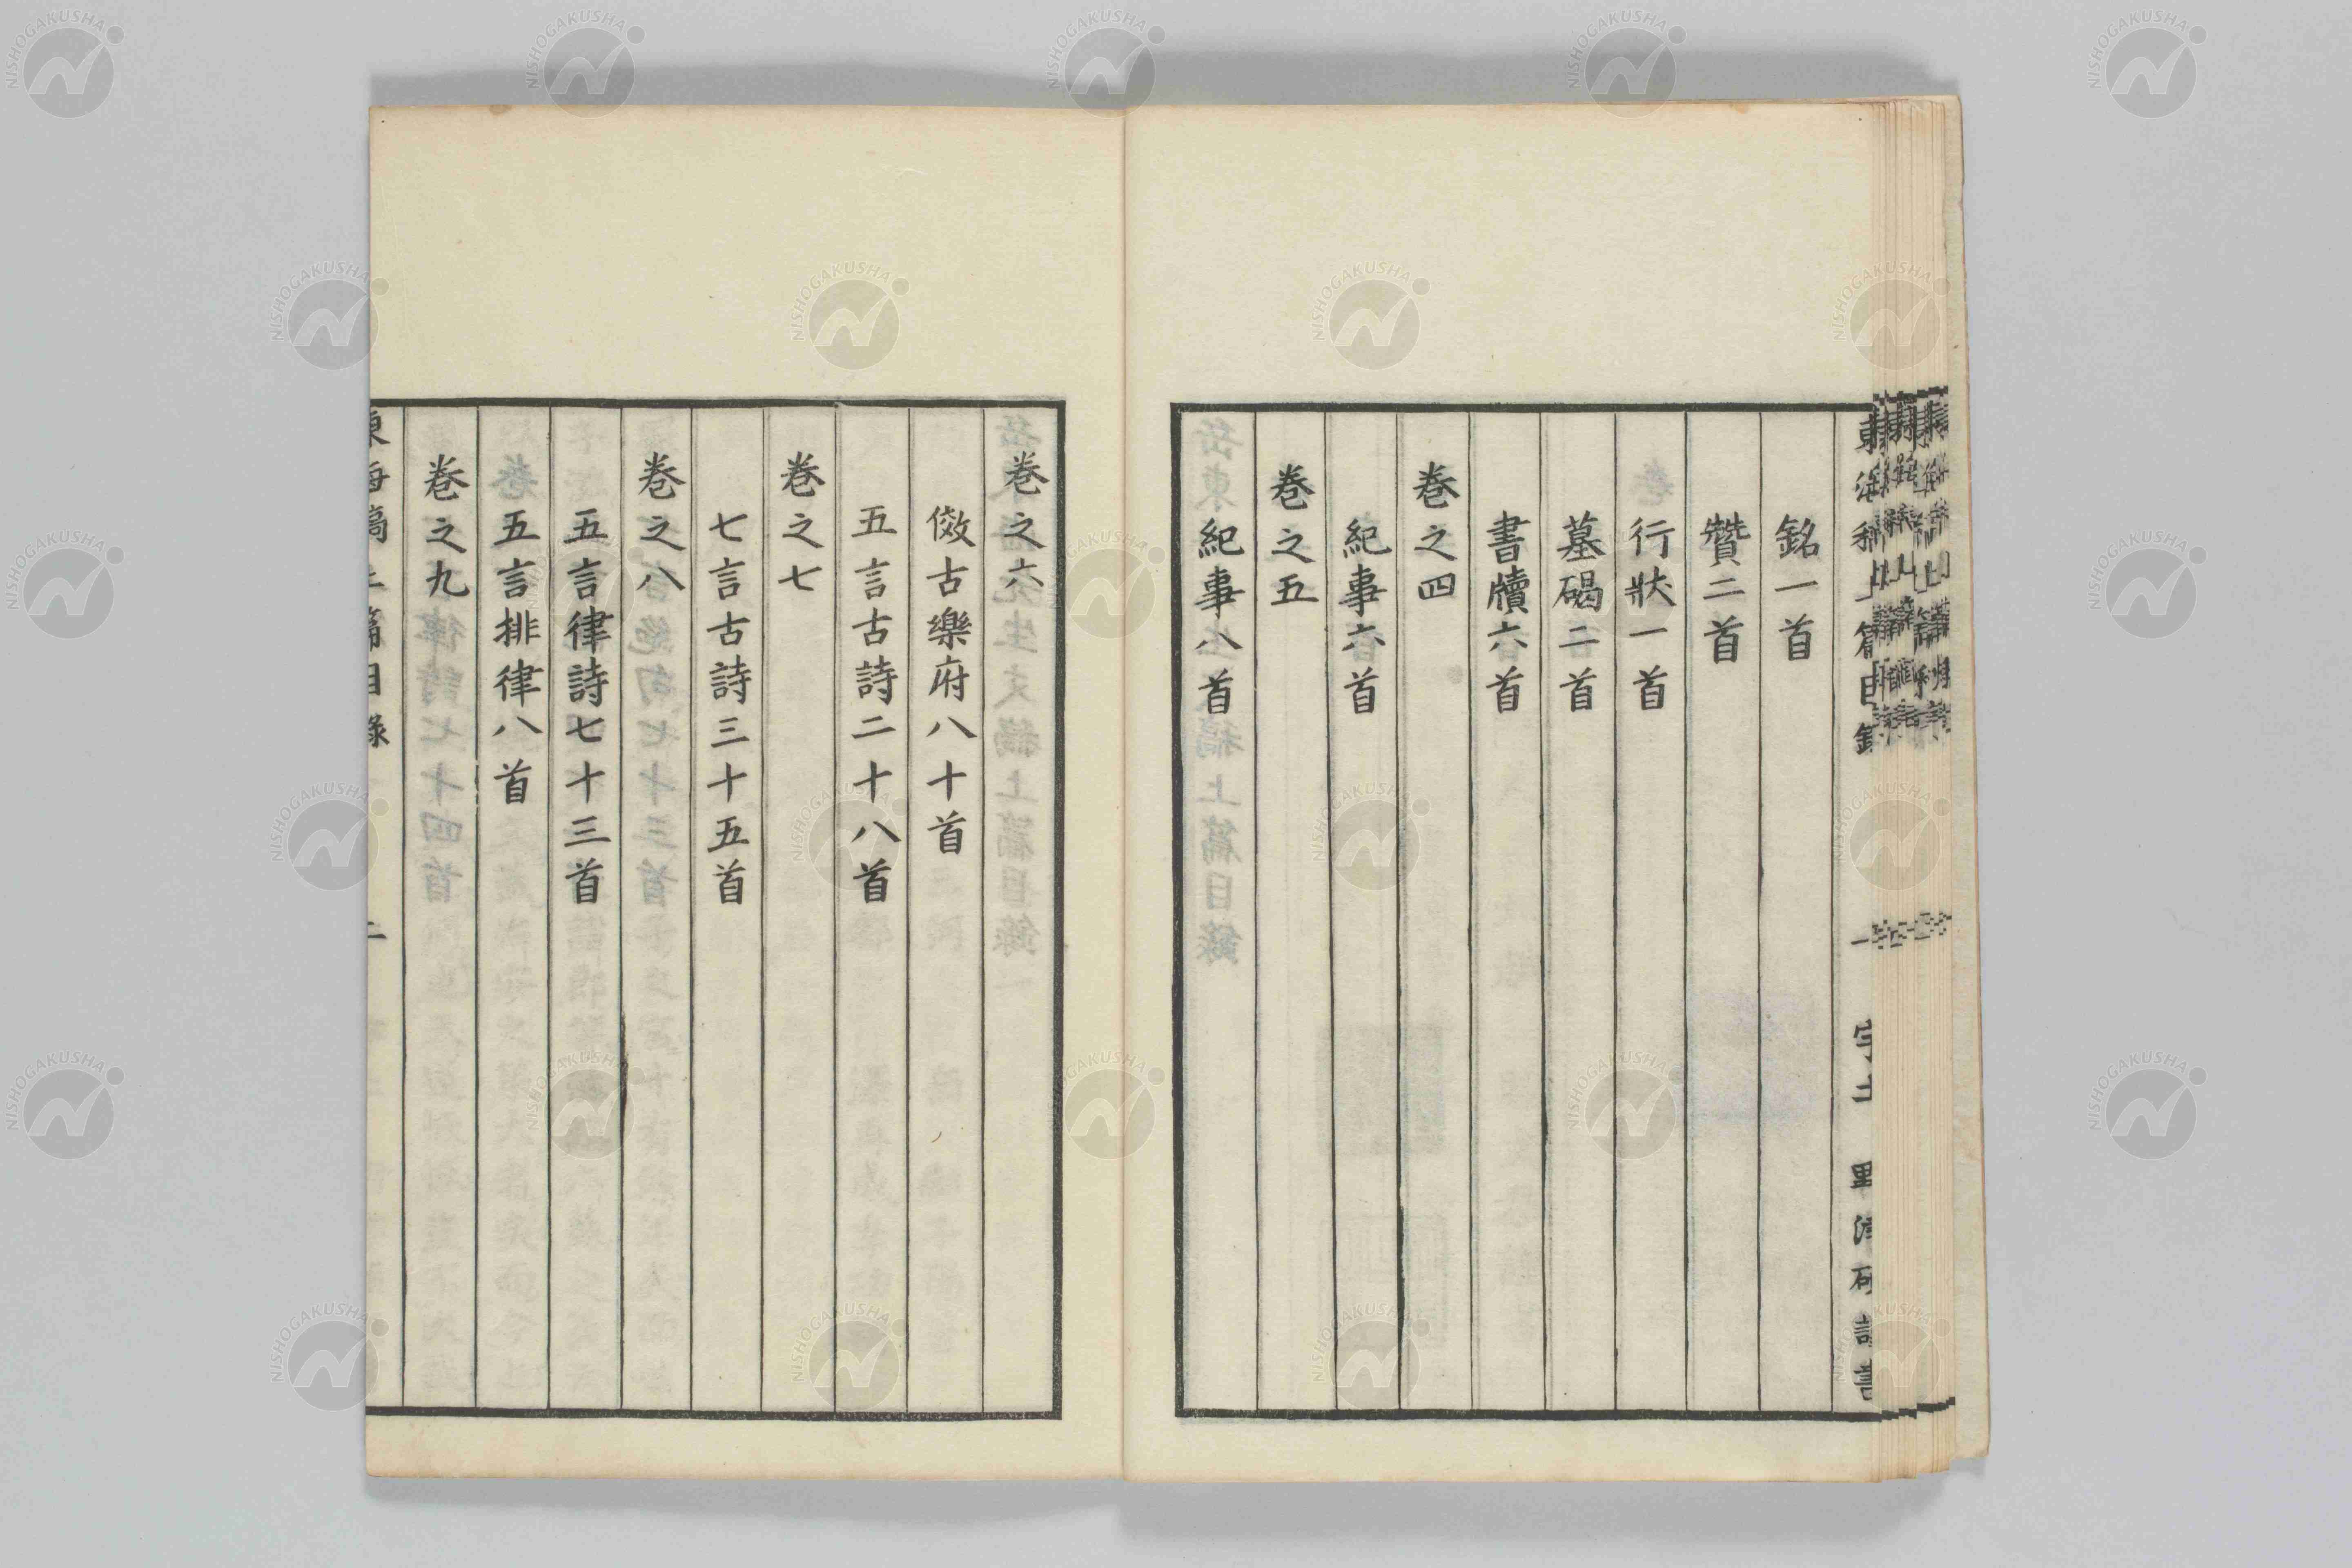 銘一首
贊二首
行狀一首
墓碣二首
書牘六首
卷之四
紀事六首
卷之五
紀事八首
卷之六
倣古樂府八十首
五言古詩二十八首
卷之七
七言古詩三十五首
卷之八
五言律詩七十三首
五言排律八首
卷之九
二
NISHOGAKUSHA